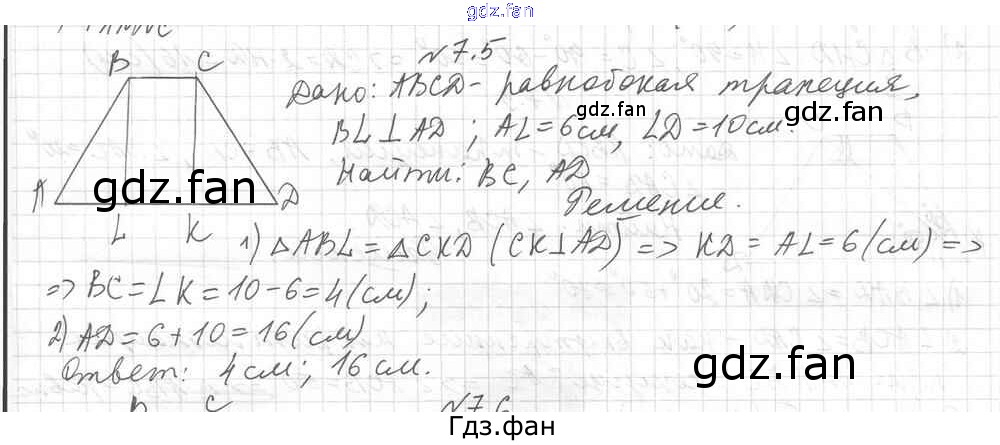 gdz.fan
№7.5
B C
Дано: ABCD - равнобокая трапеция,
gdz.fan
gdz.fan
BL ⊥ AD ; AL = 6 см, LD = 10 см.
Найти: BC, AD
gdz.fan
A D
Решение.
L K
1) △ABL = △CKD (CK⊥AD) => KD = AL = 6 (см) =>
=> BC = LK = 10 - 6 = 4 (см);
2) AD = 6 + 10 = 16 (см)
Ответ: 4 см; 16 см.
gdz.fan
B C №7.6
Гдз.фан